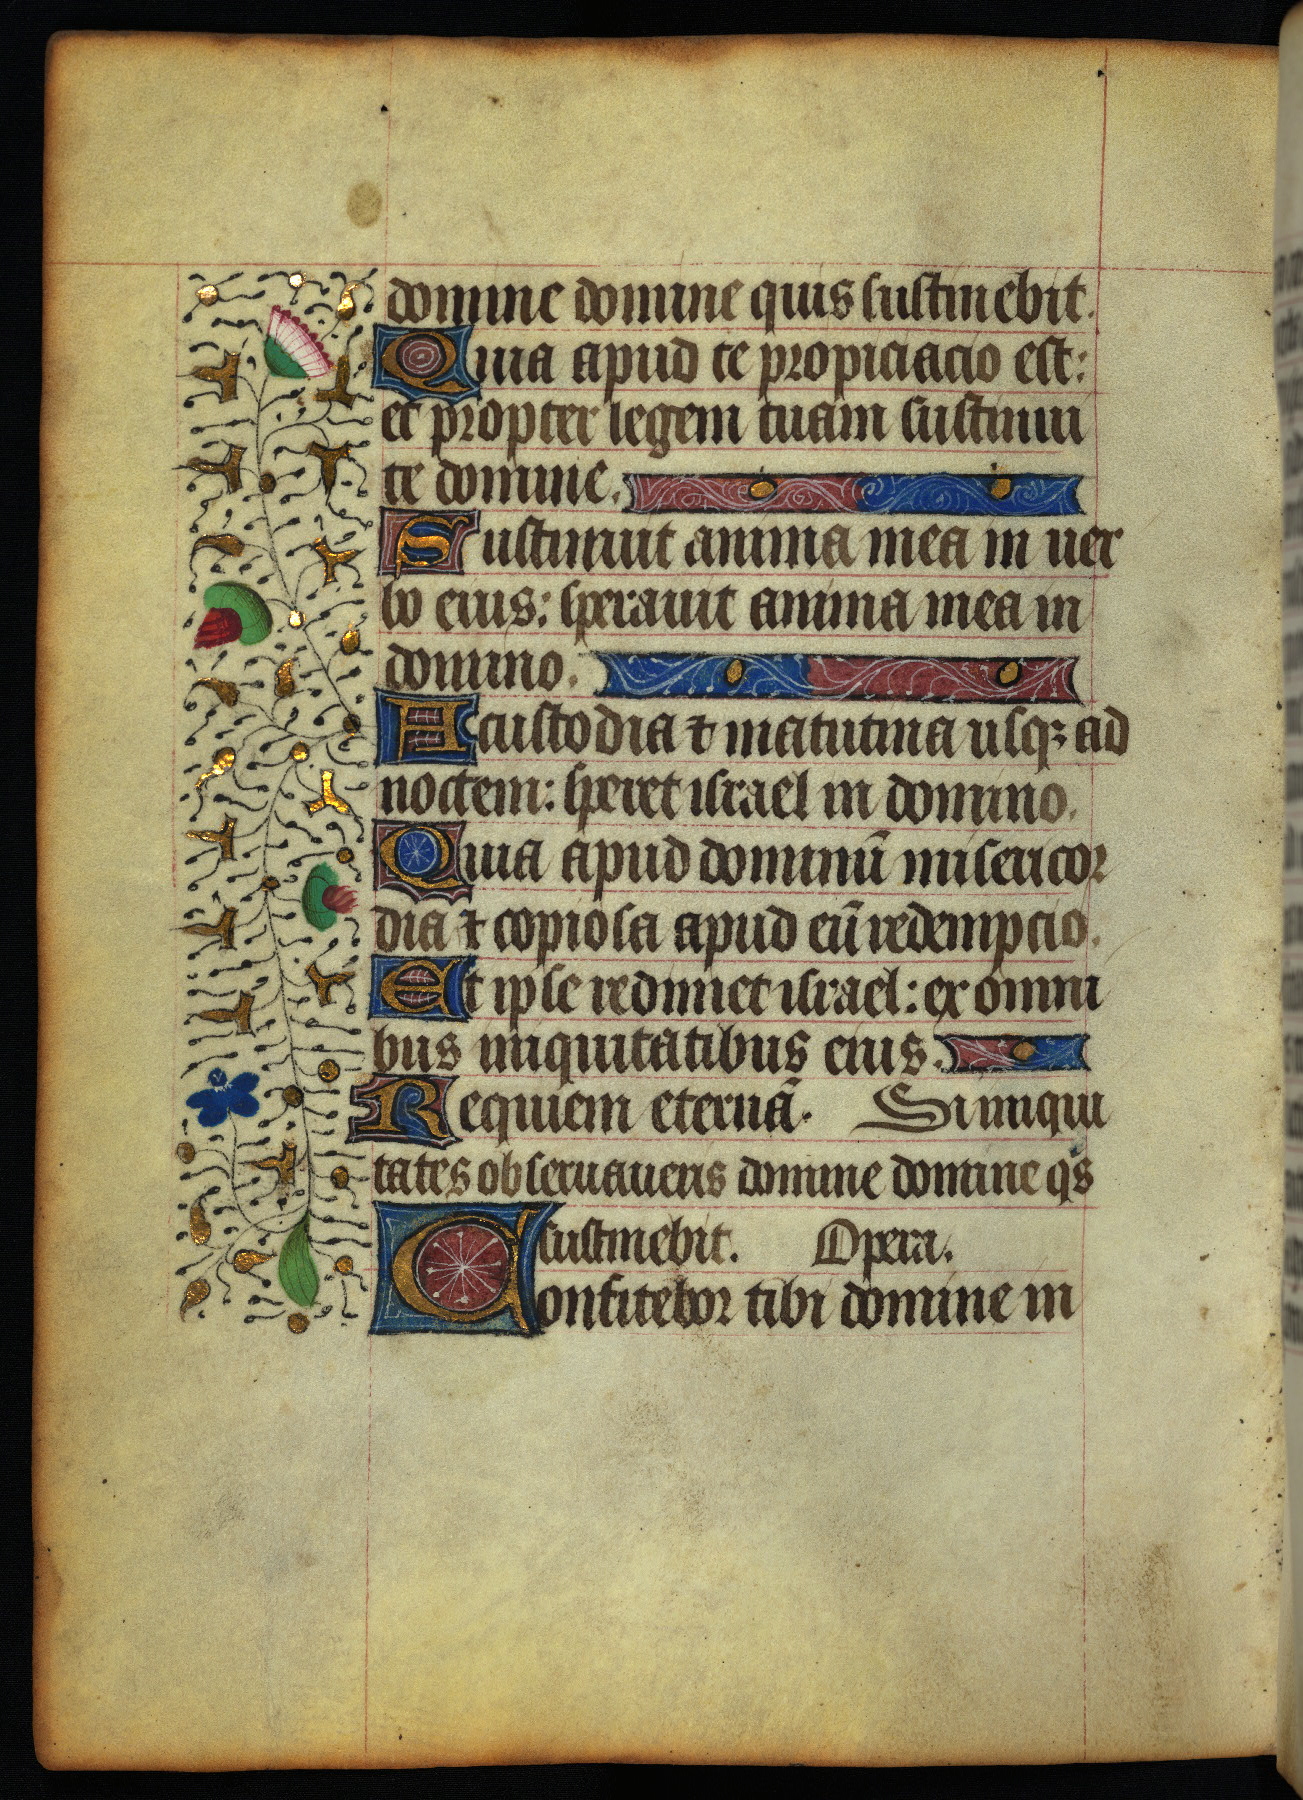 domine domine quis sustinebit.
Quia apud te propiciacio est:
et propter legem tuam sustinui
te domine.
Sustinuit anima mea in uer
bo eius: sperauit anima mea in
domino.
A custodia ⁊ matutina usqꝫ ad
noctem: speret israel in domino.
Quia apud dominū misericor
dia ⁊ copiosa apud eū redempcio.
Et ipse redimet israel: ex omni
bus iniquitatibus eius.
Requiem eternā. Si iniqui
tates obseruaueris domine domine qͥs
sustinebit. Opera.
Confitebor tibi domine in